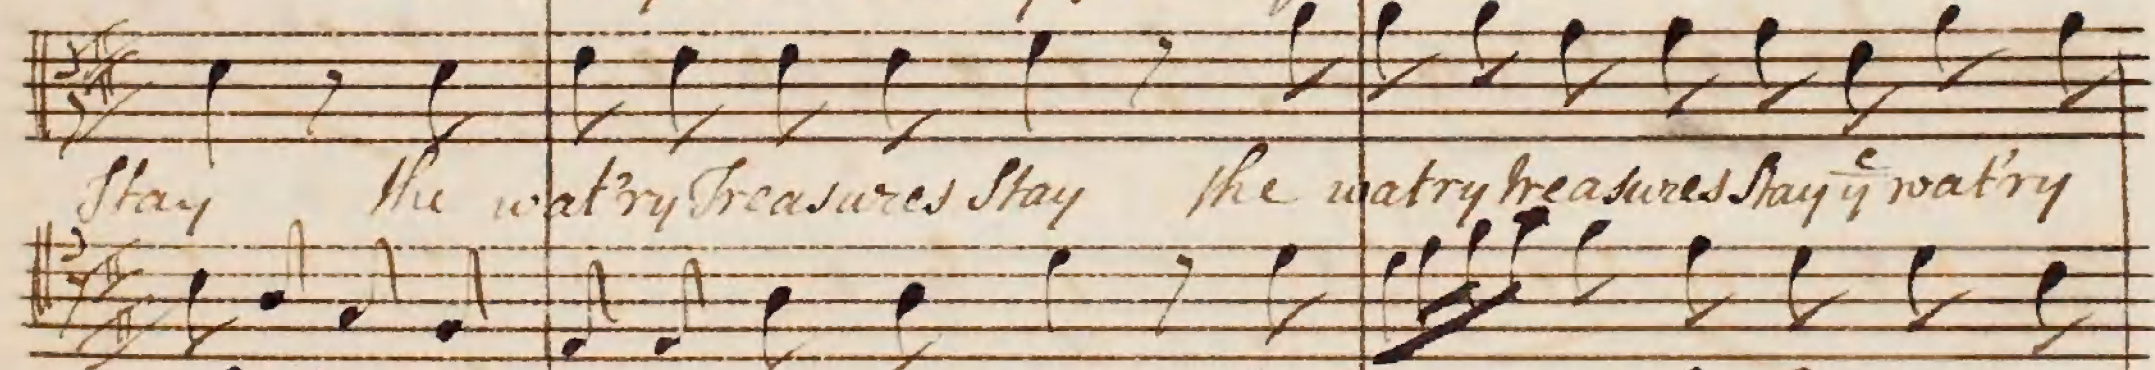 Stay the wat'ry Treasures Stay the watry treasures Stay yͤ wat'ry